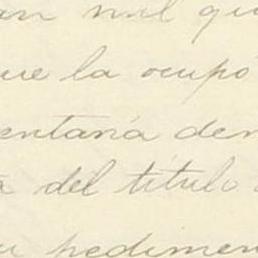 an mil qu
ue la ocupó
entana den
a del título
u pedimen